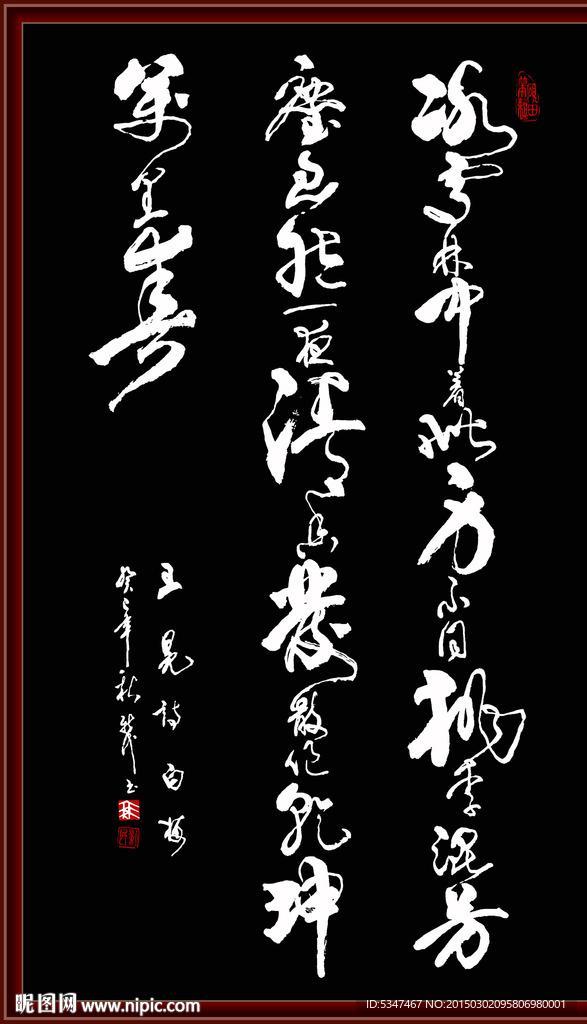 冰雪林中着此身不同桃李混芳
塵忽然一夜清香發散作乾坤
萬里春
王冕詩白梅
癸巳年秋 书
昵图网 www.nipic.com
ID:5347467 NO:20150302095806980001